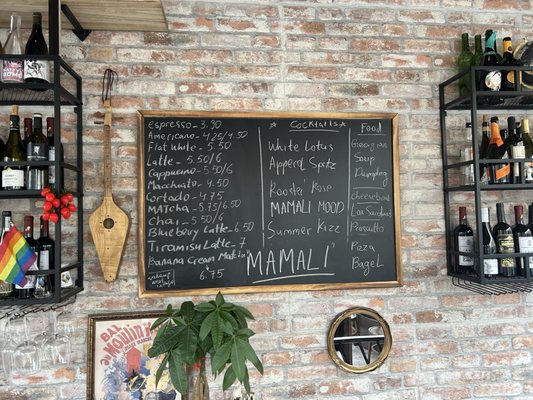 espresso - 3.90
Americano - 4.25/4.50
Flat white - 5.50
Latte - 5.50/6
Cappuccino - 5.50/6
Macchiato - 4.50
Cortado - 4.75
MATCha - 5.75/6.50
Chai - 5.50/6
Blueberry Latte - 6.50
Tiramisu Latte - 7
Banana Cream Matcha
6.75
Cocktails
White Lotus
Apperol Spritz
Rooster Rose
MAMALI MOOD
Summer Kizz
MAMALI
Food
Georgian
Soup
Dumpling
Cheeseboard
Lox Sandwich
Prosciutto
Pizza
Bagel
BAL